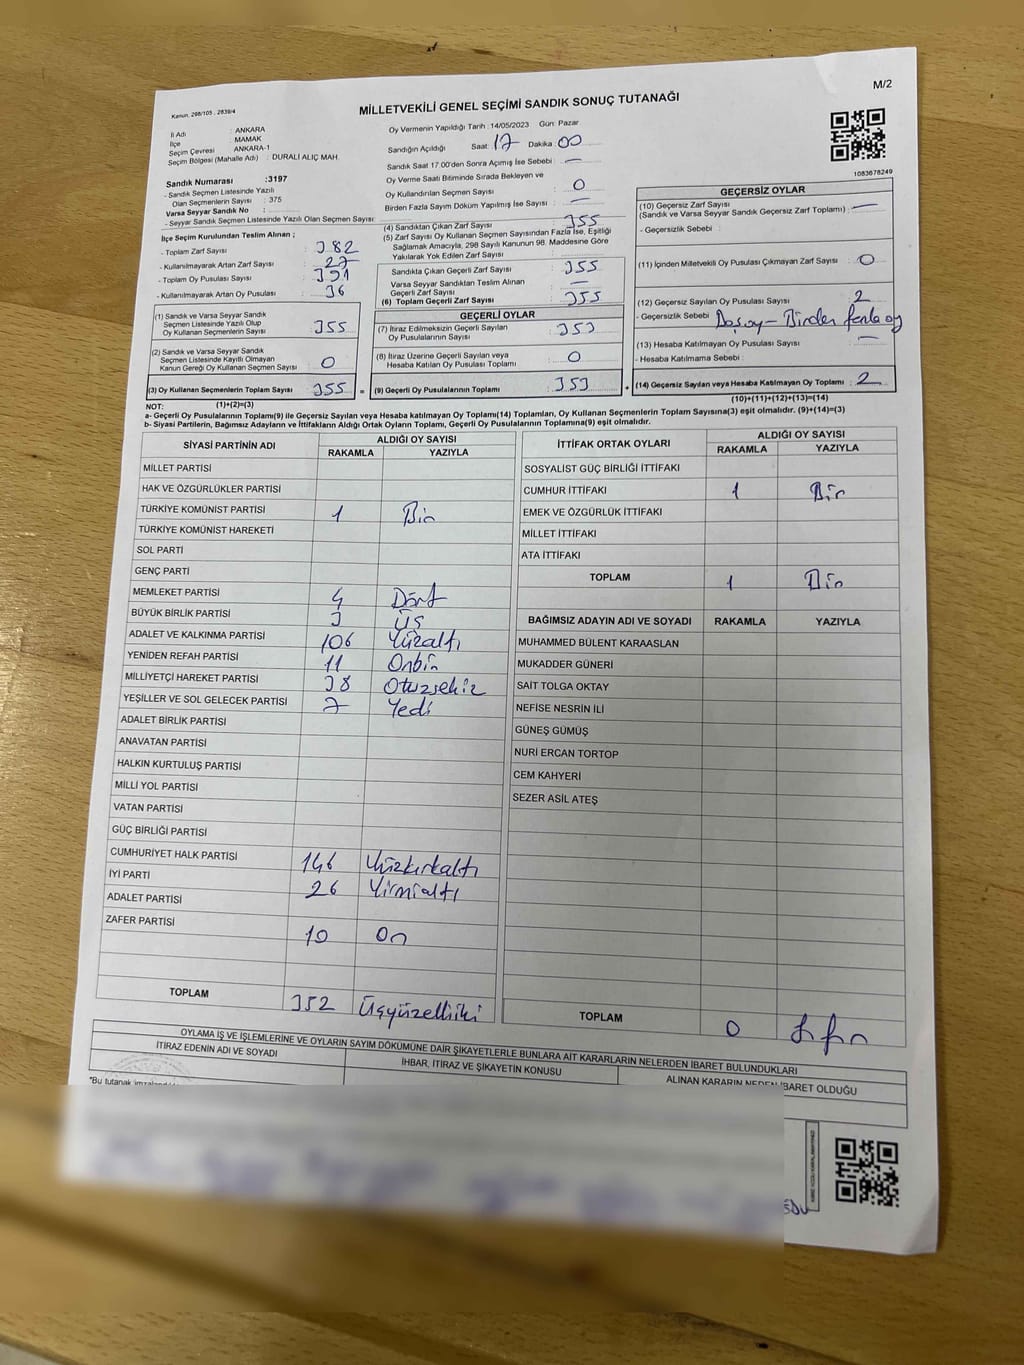 M/2
Kanun, 298/105 , 2839/4
MİLLETVEKİLİ GENEL SEÇİMİ SANDIK SONUÇ TUTANAĞI
İl Adı : ANKARA
İlçe : MAMAK
Seçim Çevresi : ANKARA-1
Seçim Bölgesi (Mahalle Adı) : DURALİ ALIÇ MAH.
Sandık Numarası :3197
- Sandık Seçmen Listesinde Yazılı
Olan Seçmenlerin Sayısı : 375
Varsa Seyyar Sandık No :
- Seyyar Sandık Seçmen Listesinde Yazılı Olan Seçmen Sayısı:
İlçe Seçim Kurulundan Teslim Alınan ;
- Toplam Zarf Sayısı : 382
- Kullanılmayarak Artan Zarf Sayısı : 27
- Toplam Oy Pusulası Sayısı : 391
- Kullanılmayarak Artan Oy Pusulası : 36
(1) Sandık ve Varsa Seyyar Sandık
Seçmen Listesinde Yazılı Olup
Oy Kullanan Seçmenlerin Sayısı : 355
(2) Sandık ve Varsa Seyyar Sandık
Seçmen Listesinde Kayıtlı Olmayan
Kanun Gereği Oy Kullanan Seçmen Sayısı : 0
(3) Oy Kullanan Seçmenlerin Toplam Sayısı : 355
Oy Vermenin Yapıldığı Tarih :14/05/2023 Gün: Pazar
Sandığın Açıldığı Saat: 17 Dakika: 00
Sandık Saat 17.00'den Sonra Açımış İse Sebebi : —
Oy Verme Saati Bitiminde Sırada Bekleyen ve
Oy Kullandırılan Seçmen Sayısı : 0
Birden Fazla Sayım Döküm Yapılmış İse Sayısı : —
(4) Sandıktan Çıkan Zarf Sayısı : 355
(5) Zarf Sayısı Oy Kullanan Seçmen Sayısından Fazla İse, Eşitliği
Sağlamak Amacıyla, 298 Sayılı Kanunun 98. Maddesine Göre
Yakılarak Yok Edilen Zarf Sayısı :
Sandıkta Çıkan Geçerli Zarf Sayısı : 355
Varsa Seyyar Sandıktan Teslim Alınan
Geçerli Zarf Sayısı : —
(6) Toplam Geçerli Zarf Sayısı : 355
GEÇERLİ OYLAR
(7) İtiraz Edilmeksizin Geçerli Sayılan
Oy Pusulalarının Sayısı : 353
(8) İtiraz Üzerine Geçerli Sayılan veya
Hesaba Katılan Oy Pusulası Toplamı : 0
= (9) Geçerli Oy Pusulalarının Toplamı : 353
1083678249
GEÇERSİZ OYLAR
(10) Geçersiz Zarf Sayısı
(Sandık ve Varsa Seyyar Sandık Geçersiz Zarf Toplamı) : —
- Geçersizlik Sebebi :
(11) İçinden Milletvekili Oy Pusulası Çıkmayan Zarf Sayısı : 0
(12) Geçersiz Sayılan Oy Pusulası Sayısı : 2
- Geçersizlik Sebebi : Boş oy – Birden fazla oy
(13) Hesaba Katılmayan Oy Pusulası Sayısı : —
- Hesaba Katılmama Sebebi :
+ (14) Geçersiz Sayılan veya Hesaba Katılmayan Oy Toplamı : 2
NOT: (1)+(2)=(3)
(10)+(11)+(12)+(13)=(14)
a- Geçerli Oy Pusulalarının Toplamı(9) ile Geçersiz Sayılan veya Hesaba katılmayan Oy Toplamı(14) Toplamları, Oy Kullanan Seçmenlerin Toplam Sayısına(3) eşit olmalıdır. (9)+(14)=(3)
b- Siyasi Partilerin, Bağımsız Adayların ve İttifakların Aldığı Ortak Oyların Toplamı, Geçerli Oy Pusulalarının Toplamına(9) eşit olmalıdır.
SİYASİ PARTİNİN ADI ALDIĞI OY SAYISI
RAKAMLA YAZIYLA
MİLLET PARTİSİ
HAK VE ÖZGÜRLÜKLER PARTİSİ
TÜRKİYE KOMÜNİST PARTİSİ 1 Bir
TÜRKİYE KOMÜNİST HAREKETİ
SOL PARTİ
GENÇ PARTİ
MEMLEKET PARTİSİ 4 Dört
BÜYÜK BİRLİK PARTİSİ 3 Üç
ADALET VE KALKINMA PARTİSİ 106 Yüzaltı
YENİDEN REFAH PARTİSİ 11 Onbir
MİLLİYETÇİ HAREKET PARTİSİ 38 Otuzsekiz
YEŞİLLER VE SOL GELECEK PARTİSİ 7 Yedi
ADALET BİRLİK PARTİSİ
ANAVATAN PARTİSİ
HALKIN KURTULUŞ PARTİSİ
MİLLİ YOL PARTİSİ
VATAN PARTİSİ
GÜÇ BİRLİĞİ PARTİSİ
CUMHURİYET HALK PARTİSİ 146 Yüzkırkaltı
İYİ PARTİ 26 Yirmialtı
ADALET PARTİSİ
ZAFER PARTİSİ 10 On
TOPLAM 352 Üçyüzelliiki
İTTİFAK ORTAK OYLARI ALDIĞI OY SAYISI
RAKAMLA YAZIYLA
SOSYALİST GÜÇ BİRLİĞİ İTTİFAKI
CUMHUR İTTİFAKI 1 Bir
EMEK VE ÖZGÜRLÜK İTTİFAKI
MİLLET İTTİFAKI
ATA İTTİFAKI
TOPLAM 1 Bir
BAĞIMSIZ ADAYIN ADI VE SOYADI RAKAMLA YAZIYLA
MUHAMMED BÜLENT KARAASLAN
MUKADDER GÜNERİ
SAİT TOLGA OKTAY
NEFİSE NESRİN İLİ
GÜNEŞ GÜMÜŞ
NURİ ERCAN TORTOP
CEM KAHYERİ
SEZER ASİL ATEŞ
TOPLAM 0 Sıfır
OYLAMA İŞ VE İŞLEMLERİNE VE OYLARIN SAYIM DÖKÜMÜNE DAİR ŞİKAYETLERLE BUNLARA AİT KARARLARIN NELERDEN İBARET BULUNDUKLARI
İTİRAZ EDENİN ADI VE SOYADI
İHBAR, İTİRAZ VE ŞİKAYETİN KONUSU
ALINAN KARARIN NEDEN İBARET OLDUĞU
*Bu tutanak